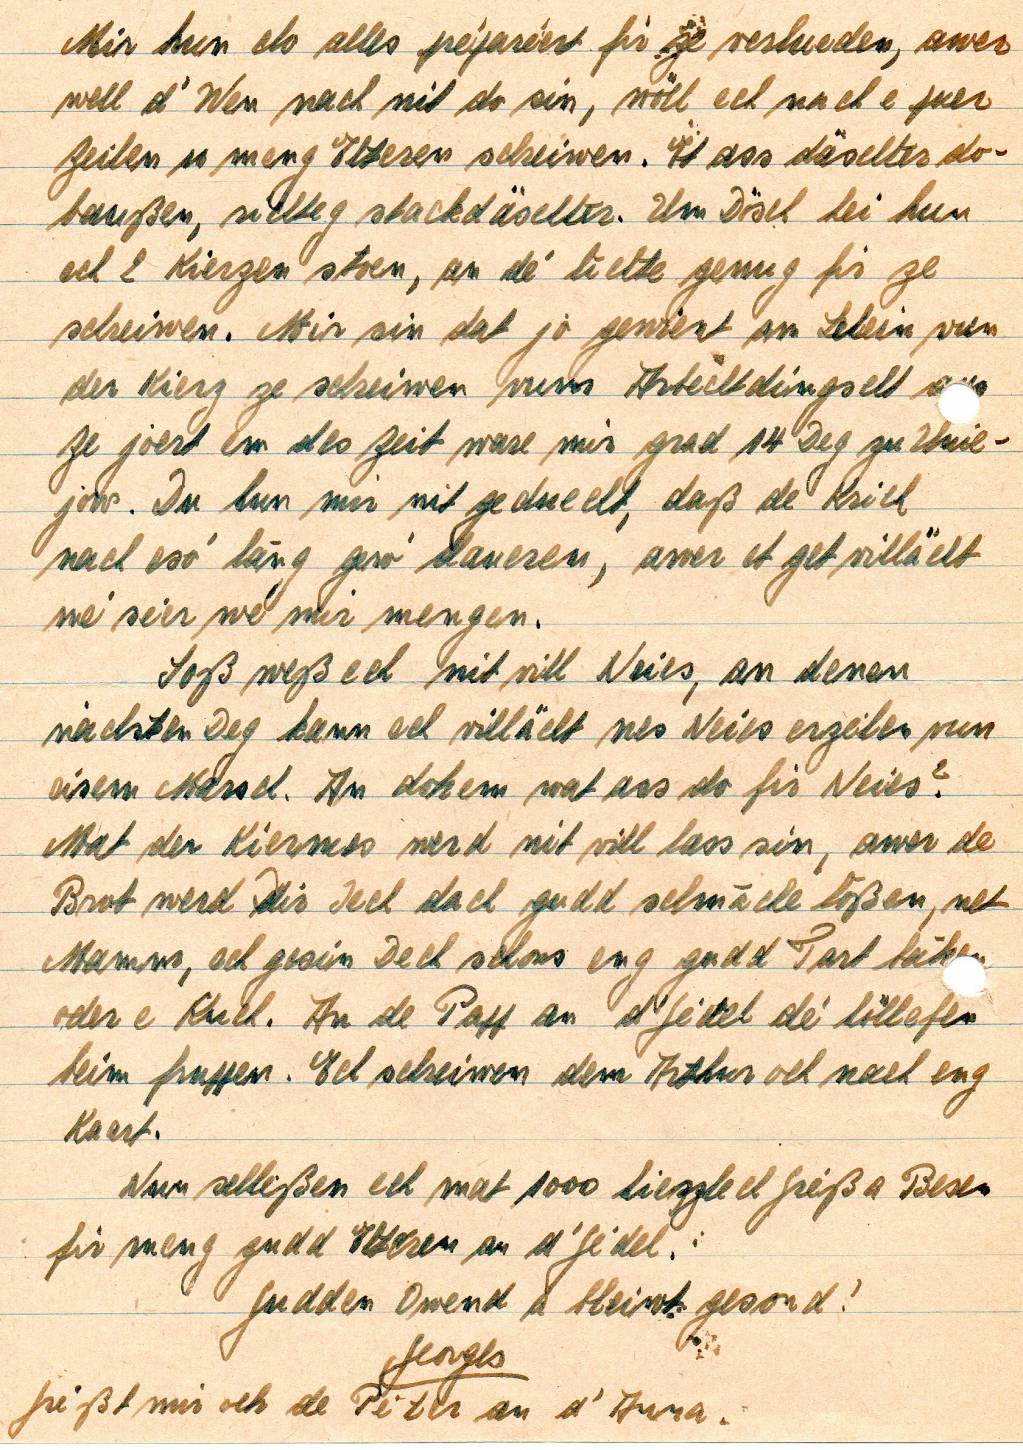 Mir hun elo alles préparéert fir ze verlueden, awer
well d'Wen nach nit do sin, wöll ech nach e puer
Zeilen u meng Elteren schreiwen. Et ass däischter do-
baußen, richteg stackdäischter. Um Dösch hei hun
ech 2 Kierzen stoen, an dé' liichte genug fir ze
schreiwen. Mir sin dat jo gewient am Schein vun
der Kierz ze schreiwen vum Arbechtdingscht aus
Ze joert em des Zeit ware mir grad 14 Deg zu Unie-
jow. Du hun mir nit geduecht, daß de Krich
nach esó' läng géw' daueren, awer et get villächt
mé' séier wé' mir mengen.
Soß weß ech nit vill Neies, an denen
nächsten Deg kann ech villächt nes Neies erzeilen vun
eisem Marsch. An dohem wat ass do fir Neies?
Mat der Kiermes werd nit vill lass sin, awer de
Brot werd dir Iech dach gudd schmäche loßen, net
Mamm, ech gesin Dech schons eng gudd Tart bäken
oder e Kuch. An de Papp an d'Gédel dé' höllefen
beim fruppen. Ech schreiwen dem Arthur och nach eng
Kaart.
Nun schließen ech mat 1000 hierzlech Gréiß a Besen
fir meng gudd Elteren an d'Gédel.
Gudden Owend a bleiwt gesond!
Georges
Gréißt mir och de Péter an d'Anna.